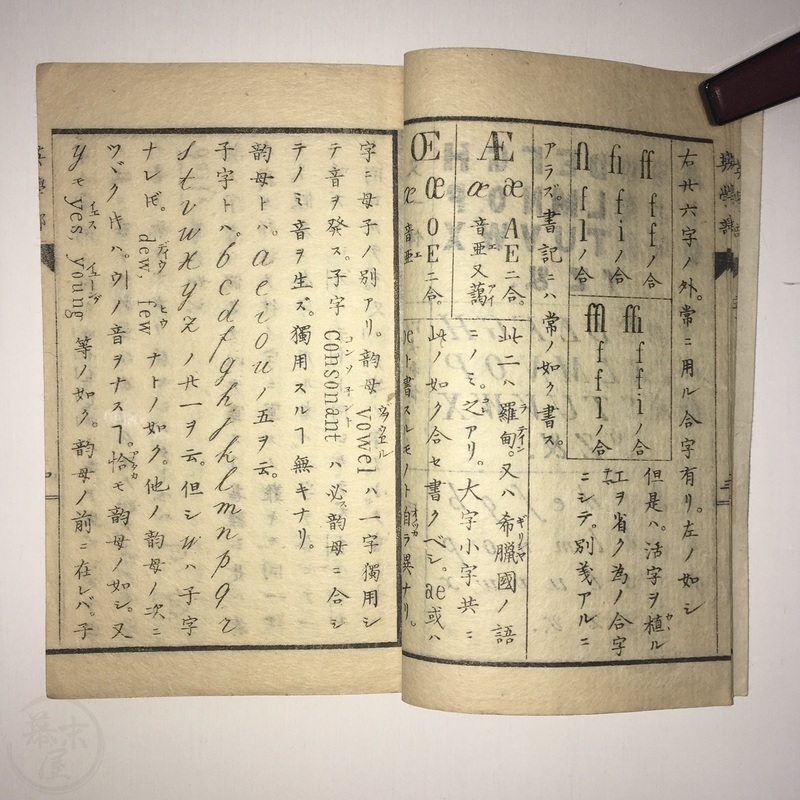 右廾六字ノ外。常ニ用ル合字有リ。左ノ如シ
ff f f ノ合
fi f i ノ合
fl f l ノ合
ffi f f i ノ合
ffl f f l ノ合
但是ハ。活字ヲ植ル
工ヲ省ク為ノ合字
ニシテ。別義アルニ
アラズ。書記ニハ常ノ如ク書ス。
Æ æ A E 二合。
æ 音亜エ又藹アイ
Œ œ o E 二合。
œ 音亜エ
此二ハ羅甸ラテイン。又ハ希臘ギリシヤ國ノ語
ニノミ。之アリ。大字小字共ニ
此ノ如ク合セ書クベシ。ae或ハ
oeト書スルモノト自オノヅカラ異ナリ。
字ニ母子ノ別アリ。韵母 vowel ハ一字獨用シ
テ音ヲ發ス。子字 consonant コンソナント ハ必ズ韵母ニ合シ
テノミ音ヲ生ズ。獨用スルヿ無キナリ。
韵母トハ。a e i o u ノ五ヲ云。
子字トハ。b c d f g h j k l m n p q r
s t v w x y z ノ廾一ヲ云。但シ w ハ子字
ナレ𪜈。dew, few ヒウ ナトノ如ク。他ノ韵母ノ次ニ
ツヾク𪜈ハ。ウノ音ヲナスヿ。恰モ韵母ノ如シ。又
y モ yes, イエス young イユーング 等ノ如ク。韵母ノ前ニ在レバ。子
幕末屋